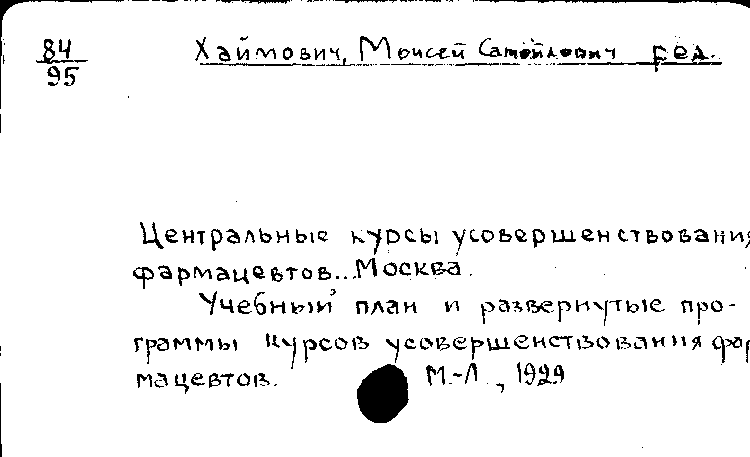 84
95
Хаймович, Моисей Самойлович ред.
Центральные курсы усовершенствования
фармацевтов... Москва.
Учебный план и развернутые про-
граммы курсов усовершенствования фар
мацевтов. М.-Л., 1929